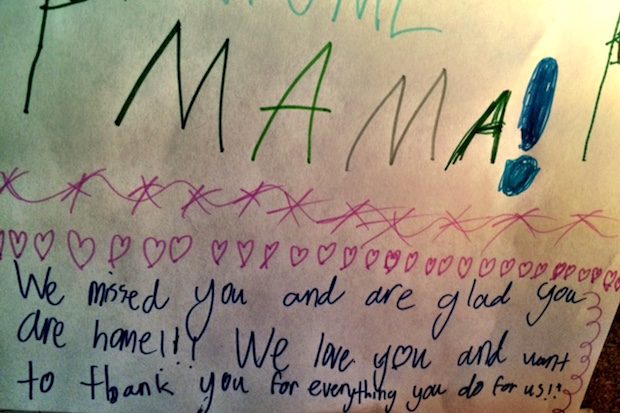 MAMA!
We missed you and are glad you
are home!!! We love you and want
to thank you for everything you do for us!!